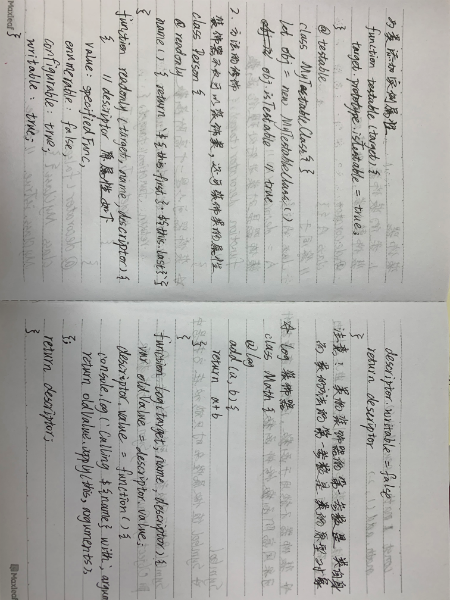 为类添加实例属性
function testable(target) {
target.prototype.isTestable = true;
}
@testable
class MyTestableClass { }
let obj = new MyTestableClass();
obj.isTestable // true
2. 方法的修饰
修饰器不仅可以修饰类，还可修饰类的属性
class Person {
@readonly
name() { return `${this.first} ${this.last}` }
}
function readonly(target, name, descriptor) {
{ // descriptor 原属性如下
value: specifiedFunc,
enumerable: false,
configurable: true,
writable: true,
}
descriptor.writable = false
return descriptor
}
注意：类的修饰器的第一参数是类自身
而类的方法的第一参数是类的原型对象
log 修饰器
class Math {
@log
add(a, b) {
return a+b
}
}
function log(target, name, descriptor) {
var oldValue = descriptor.value;
descriptor.value = function() {
console.log(`Calling ${name} with`, argum
return oldValue.apply(this, arguments);
};
return descriptor;
}
Maxleaf
Maxleaf